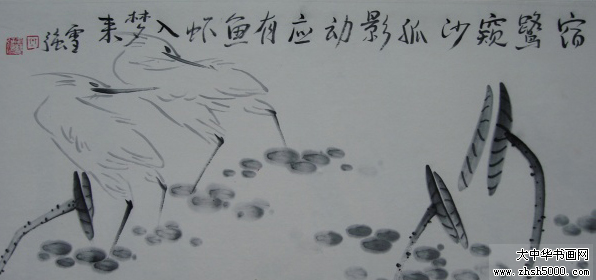 宿鹭窥沙孤影动应有鱼虾入梦来
雪强
大中华书画网
www.zhsh5000.com